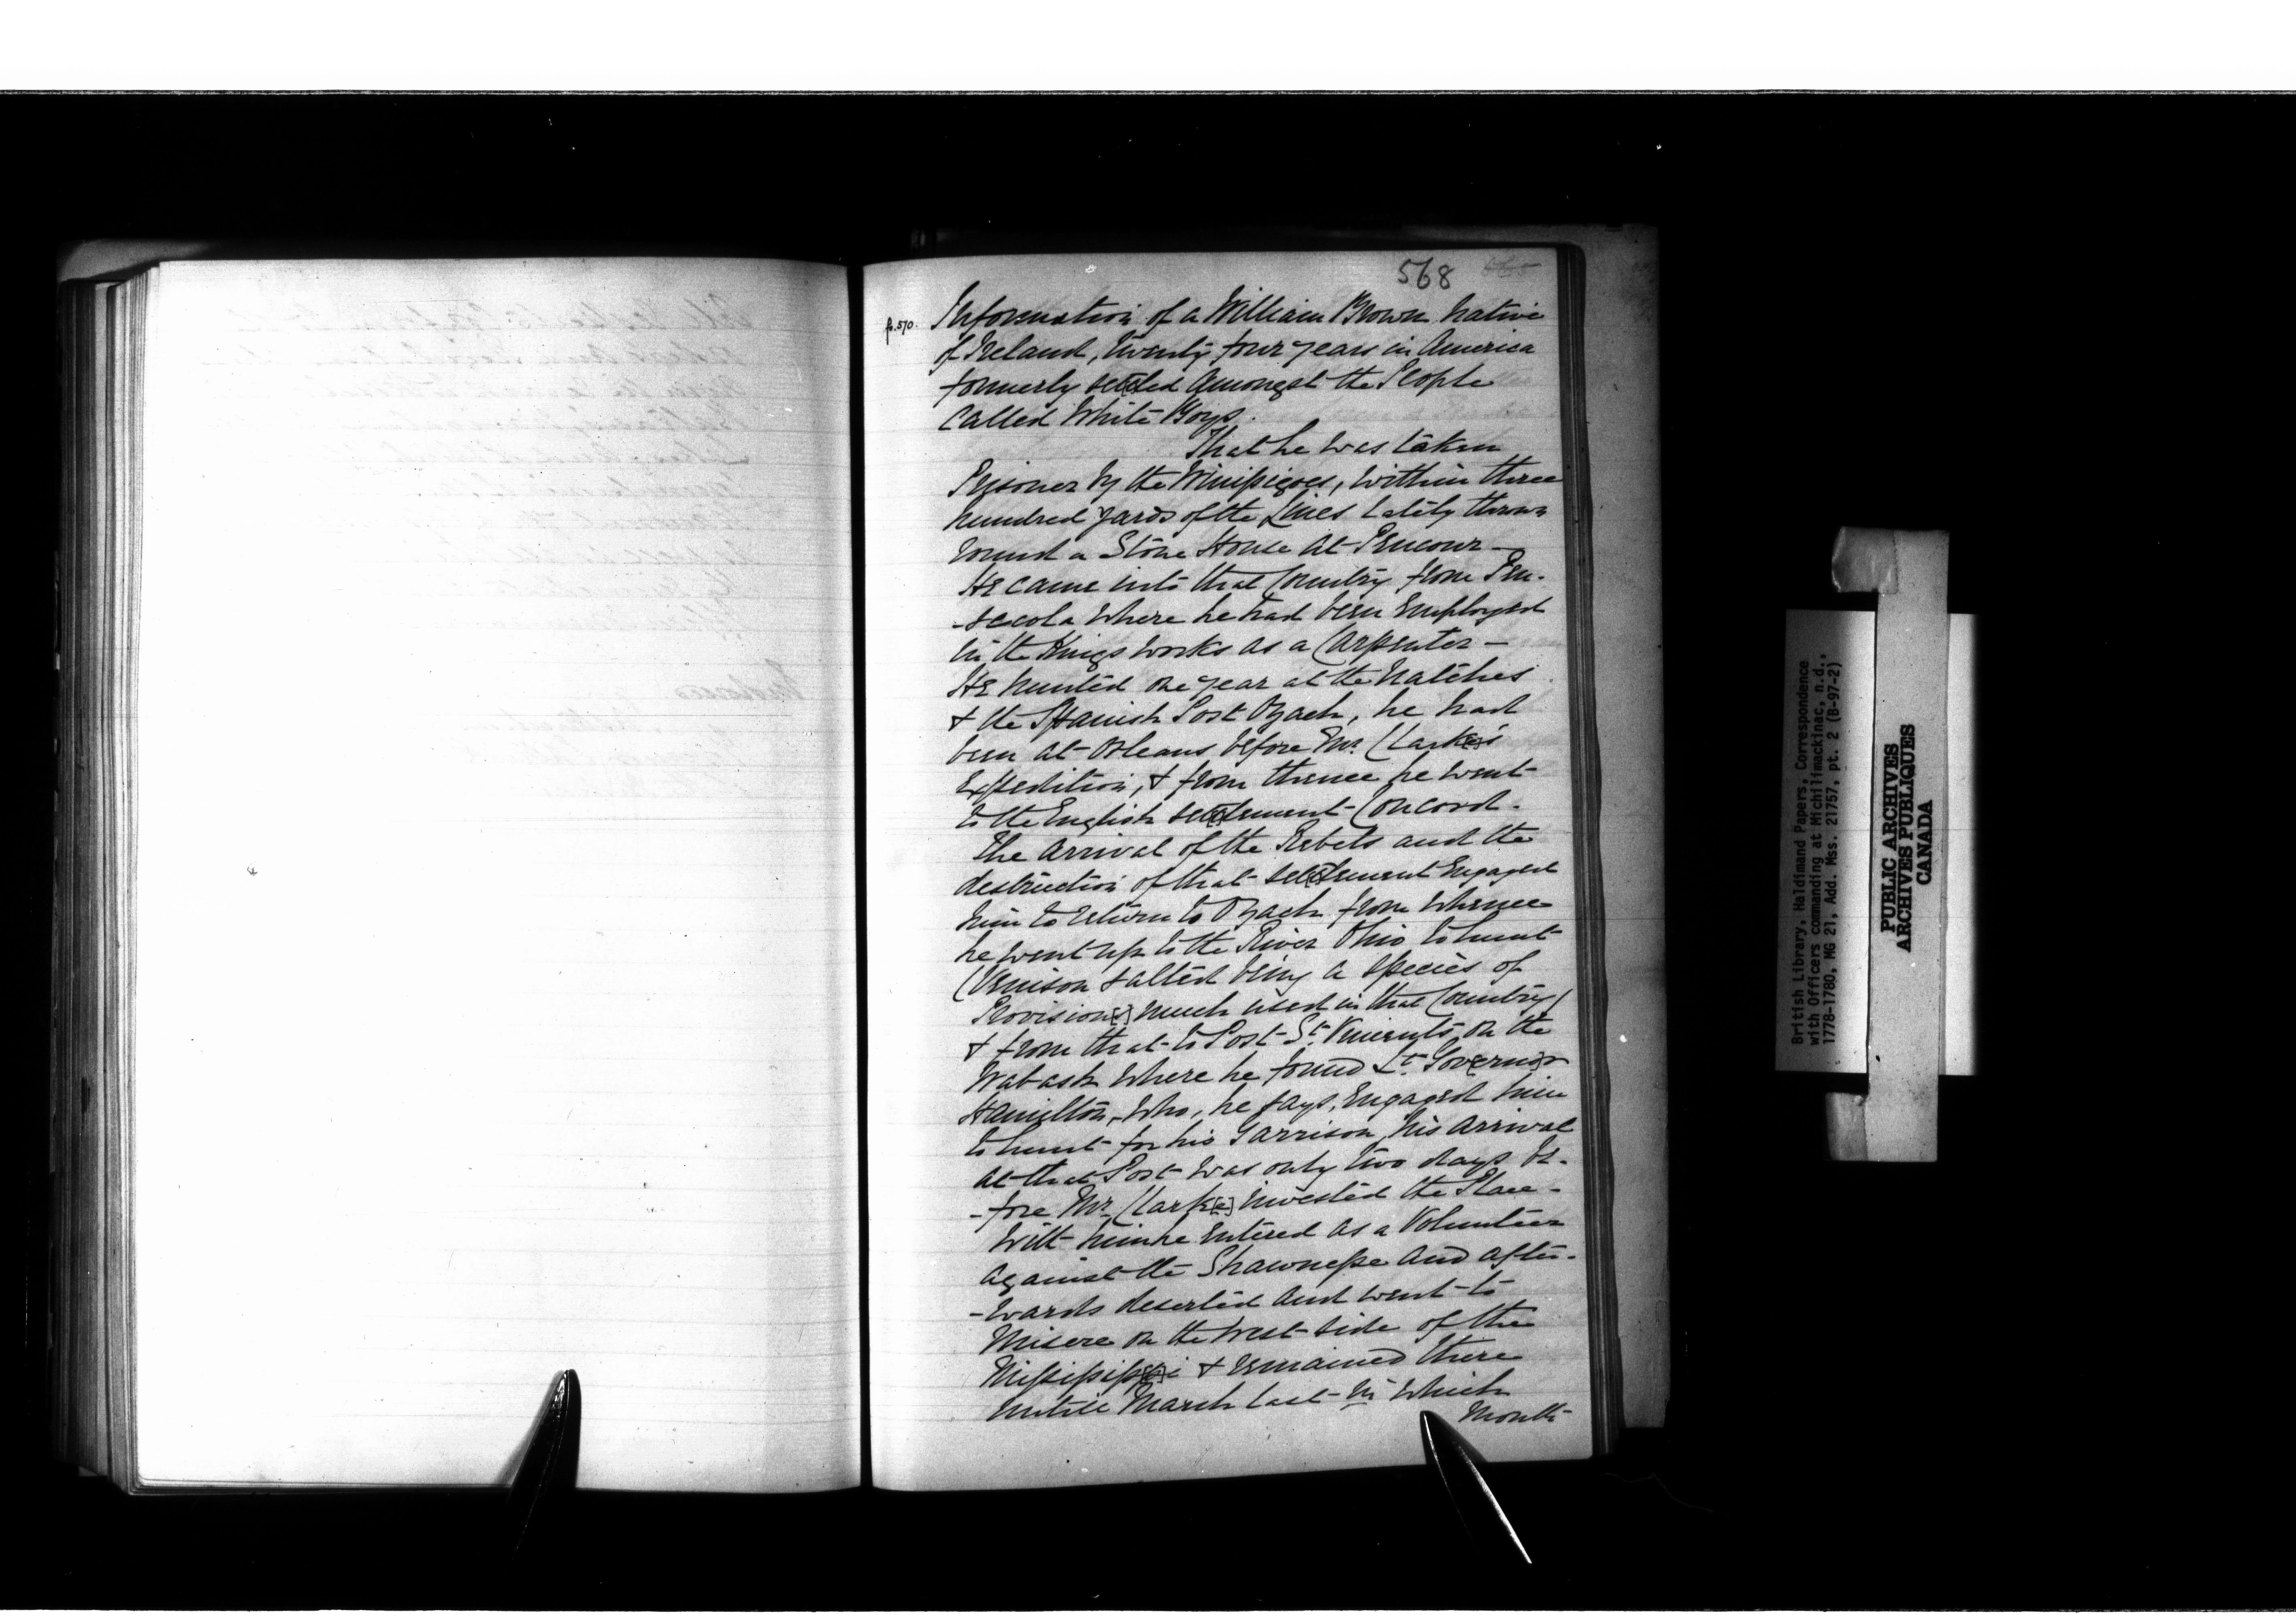 568
fo. 570.
Information of a William Brown native
of Ireland, twenty four years in America
formerly set[t]led amongst the People
called White Boys.
That he was taken
Prisoner by the Winipigoes, within three
hundred yards of the Lines lately thrown
round a Stone House at Pencour –
He came into that Country from Pen-
-sacola where he had been employed
in the Kings works as a Carpenter –
He hunted one year at the Natches
& the Spanish Post Ozack, he had
been at Orleans before Mr. Clark[e]'s
Expedition, & from thence he went
to the English set[t]lement Concord.
The arrival of the Rebels and the
destruction of that set[t]lement Engaged
him to return to Ozack from whence
he went up to the River Ohio to hunt
(Venison salted being a species of
Provision[s] much used in that Country)
& from that to Post St. Vincents on the
Wabash where he found Lt. Governor
Hamilton, who, he says, Engaged him
to hunt for his Garrison, his arrival
at that Post was only two days be-
-fore Mr. Clark[e] invested the Place –
With him he entered as a Volunteer
against the Shawnesse and after-
-wards deserted and went to
Misere on the West side of the
Missisip[p]i & remained there
untill March last in which
Month
British Library, Haldimand Papers, Correspondence
with Officers commanding at Michilimackinac, n.d.,
1778-1780, MG 21, Add. Mss. 21757, pt. 2 (B-97-2)
PUBLIC ARCHIVES
ARCHIVES PUBLIQUES
CANADA